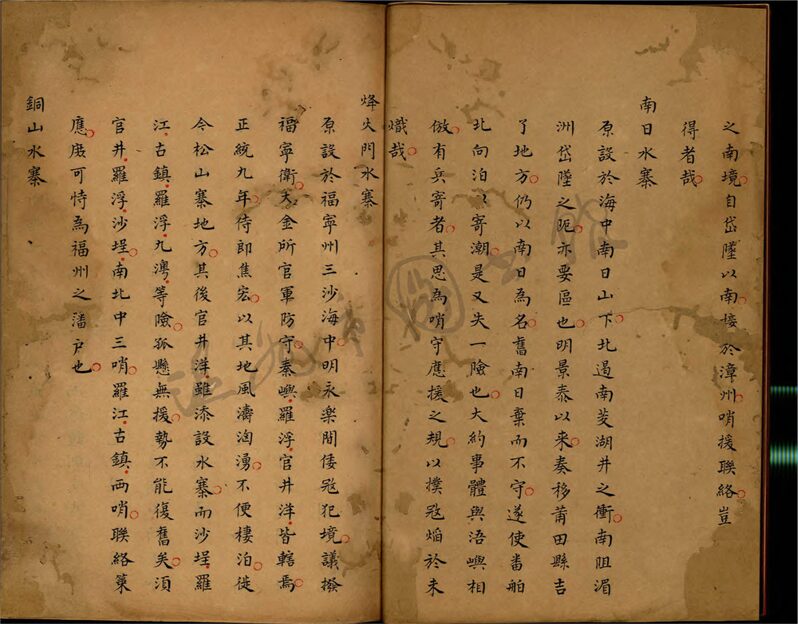 之南境自岱墜以南接於漳州哨援聯絡豈
得者哉
南日水寨
原設於海中南日山下北遏南茭湖井之衝南阻湄
洲岱墜之阨亦要區也明景泰以來奏移莆田縣吉
了地方仍以南日為名舊南日棄而不守遂使畨舶
北向泊以寄潮是又失一險也大約事體與浯嶼相
倣有兵寄者其思為哨守應援之規以撲㓂焰於未
熾哉
烽火門水寨
原設於福寧州三沙海中明永樂間倭㓂犯境議撥
福寧衛大金所官軍防守秦嶼羅浮官井洋皆轄焉
正統九年侍郎焦宏以其地風濤洶湧不便棲泊徙
今松山寨地方其後官井洋雖添設水寨而沙埕羅
江古鎮羅浮九澳等險孤懸無援勢不能復舊矣湏
官井羅浮沙埕南北中三哨羅江古鎮兩哨聯絡策
應庶可恃為福州之潘户也
銅山水寨